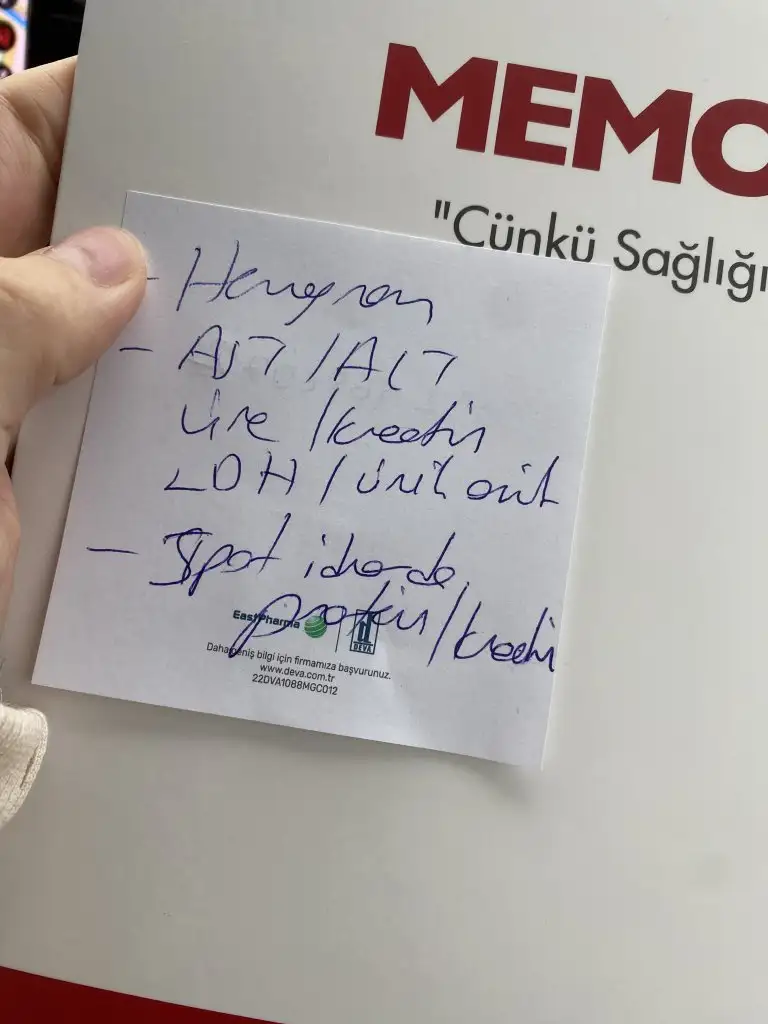 MEMO
"Çünkü Sağlığı
- Hemogram
- AST / ALT
üre / kreatin
LDH / ürik asit
- Spot idrarda
protein / kreatin
EastPharma DEVA
Daha geniş bilgi için firmamıza başvurunuz.
www.deva.com.tr
22DVA1088MGC012